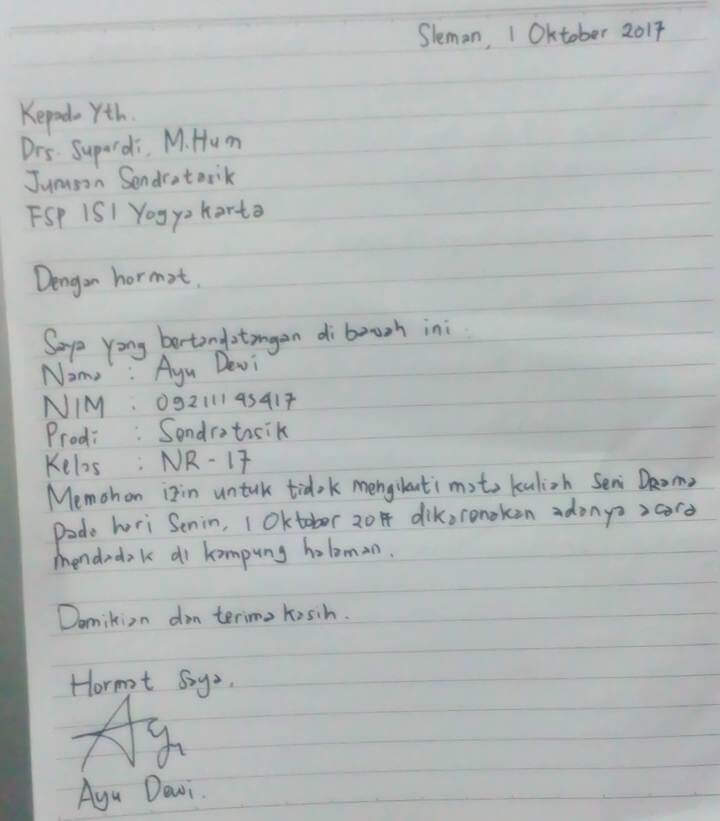 Sleman, 1 Oktober 2017
Kepada Yth.
Drs. Supardi, M.Hum
Jurusan Sendratasik
FSP ISI Yogyakarta
Dengan hormat,
Saya yang bertandatangan di bawah ini :
Nama : Ayu Dewi
NIM : 09211193417
Prodi : Sendratasik
Kelas : NR - 17
Memohon izin untuk tidak mengikuti mata kuliah Seni Drama
pada hari Senin, 1 Oktober 2017 dikarenakan adanya acara
mendadak di kampung halaman.
Demikian dan terima kasih.
Hormat Saya,
Ay
Ayu Dewi.